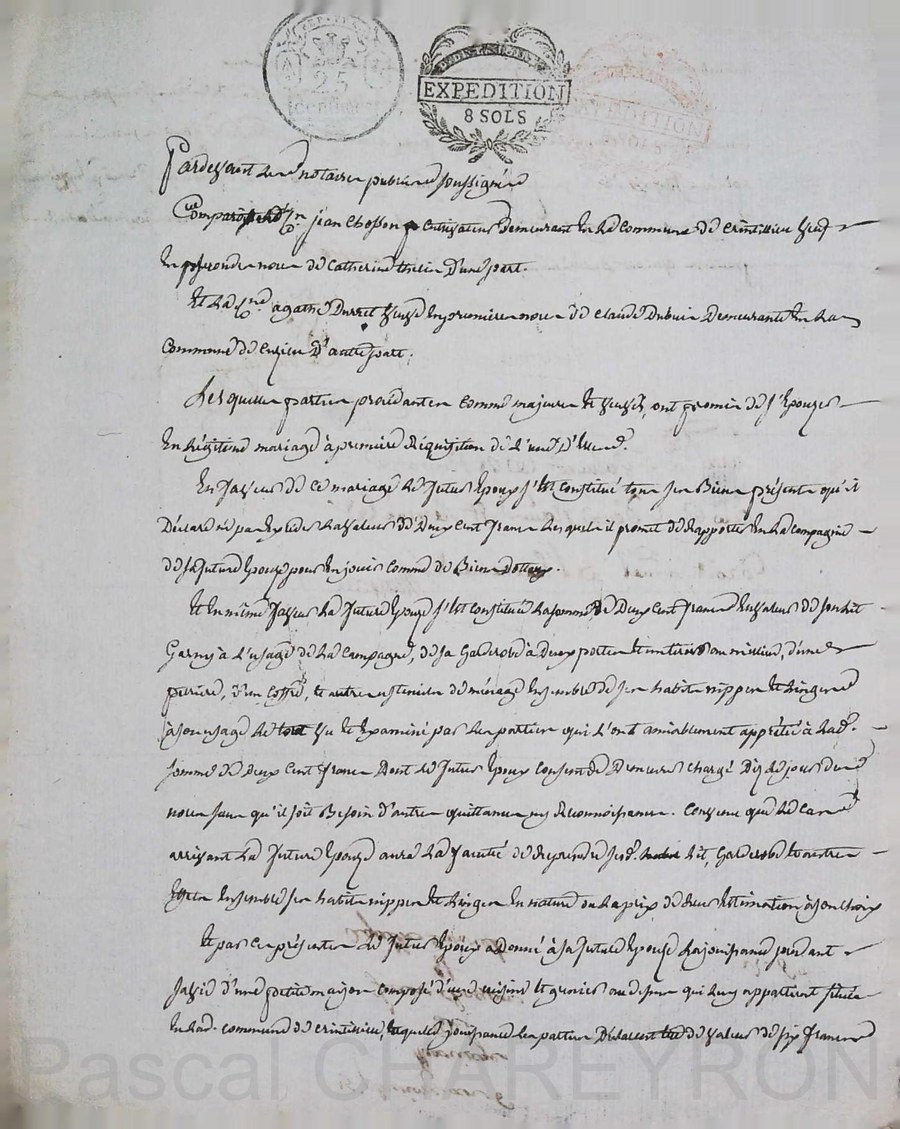 REP. FRA.
25
centimes
EXPEDITION
8 SOLS
EXPEDITION
Pardevant le notaire public soussigné
Comparoissent jean Chosson Cultivateur demeurant en la Commune de Crintillieu veuf
en secondes noces de Catherine d'une part.
Et la Cne agathe Durret veuve en premiere noces de Claude Dubuis demeurante en la
Commune de Curieu D'autre part.
Lesquelles parties procédantes comme majeures et veufs, ont promis de s'Epouzer
En Légitime mariage à premiere Réquisition de L'une D'elles.
En faveur de ce mariage Le futur Epoux s'est Constitué tous ses Biens présents qu'il
Déclare ne pas exceder la valeur de Deux cent francs lesquels il promet de Rapporter en la Compagnie
de sa future Epouse pour en jouir comme de Biens Dottaux.
Et en même faveur La future Epouse s'est Constituée la somme de Deux cent francs en valeur de son Lit
Garny à L'usage de La Campagne, de sa Garderobe à deux portes et un tiroir au milieu, d'une
petriere, d'un Coffre, et autres ustenciles de ménage Ensemble de ses habits nippes et Linges
à son usage Le tout vu et Examiné par les parties qui L'ont amiablement apprétié à Lad.
somme de deux Cent francs Dont Le futur Epoux consent de Demeurer chargé Dès le jour des
noces sans qu'il soit Besoin d'autre quittance ny Reconnoissance. Convenu que Le Cas
arrivant La future Epouse aura La faculté de reprendre sesd. Lit, Garderobe et autres
Effets Ensemble ses habits nippes et Linges En nature ou Le prix de leur Estimation à son choix
Et par ces présentes Le futur Epoux a Donné à sa future Epouse La jouissance pendant
sa vie d'une petite maison composé d'une cuisine et grenier au dessus qui luy appartient située
en lad. commune de Crintillieu, laquelle jouissance les parties Déclarent être de valeur de six francs
Pascal CHAREYRON